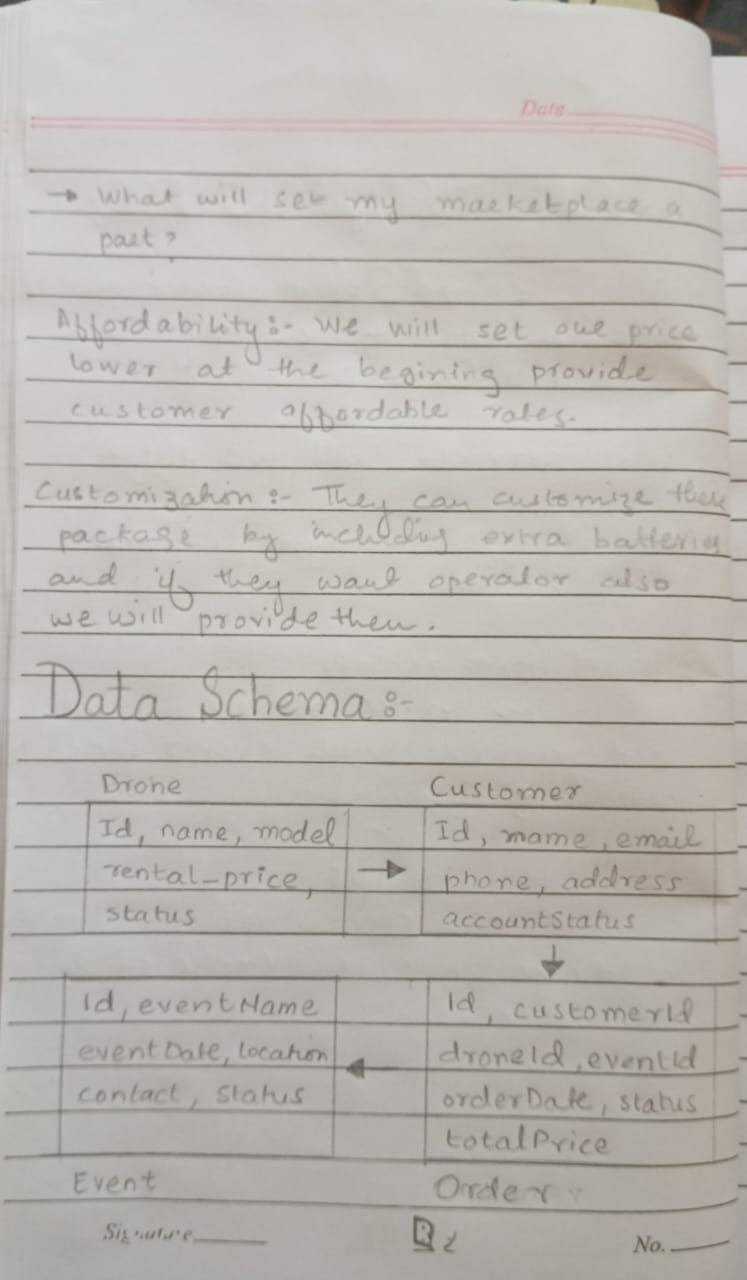 Date
→ What will set my marketplace a
part?
Affordability:- We will set our price
lower at the begining provide
customer affordable rates.
Customization:- They can customize their
package by including extra batteries
and if they want operator also
we will provide them.
Data Schema:-
Drone
Customer
Id, name, model
rental_price,
status
→
Id, name, email
phone, address
accountStatus
↓
Id, eventName
eventDate, location
contact, status
←
Id, customerId
droneId, eventId
orderDate, status
totalPrice
Event
Order
Signature
No.